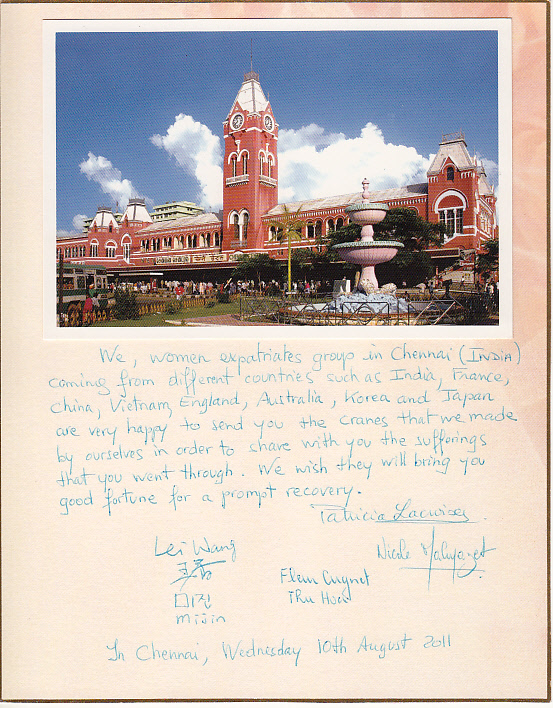 We, women expatriates group in Chennai (INDIA)
coming from different countries such as India, France,
China, Vietnam, England, Australia, Korea and Japan
are very happy to send you the cranes that we made
by ourselves in order to share with you the sufferings
that you went through. We wish they will bring you
good fortune for a prompt recovery.
Patricia
Lei Wang
Nicole
미진
mijin
Fleur Cugnet
Thu
In Chennai, Wednesday 10th August 2011